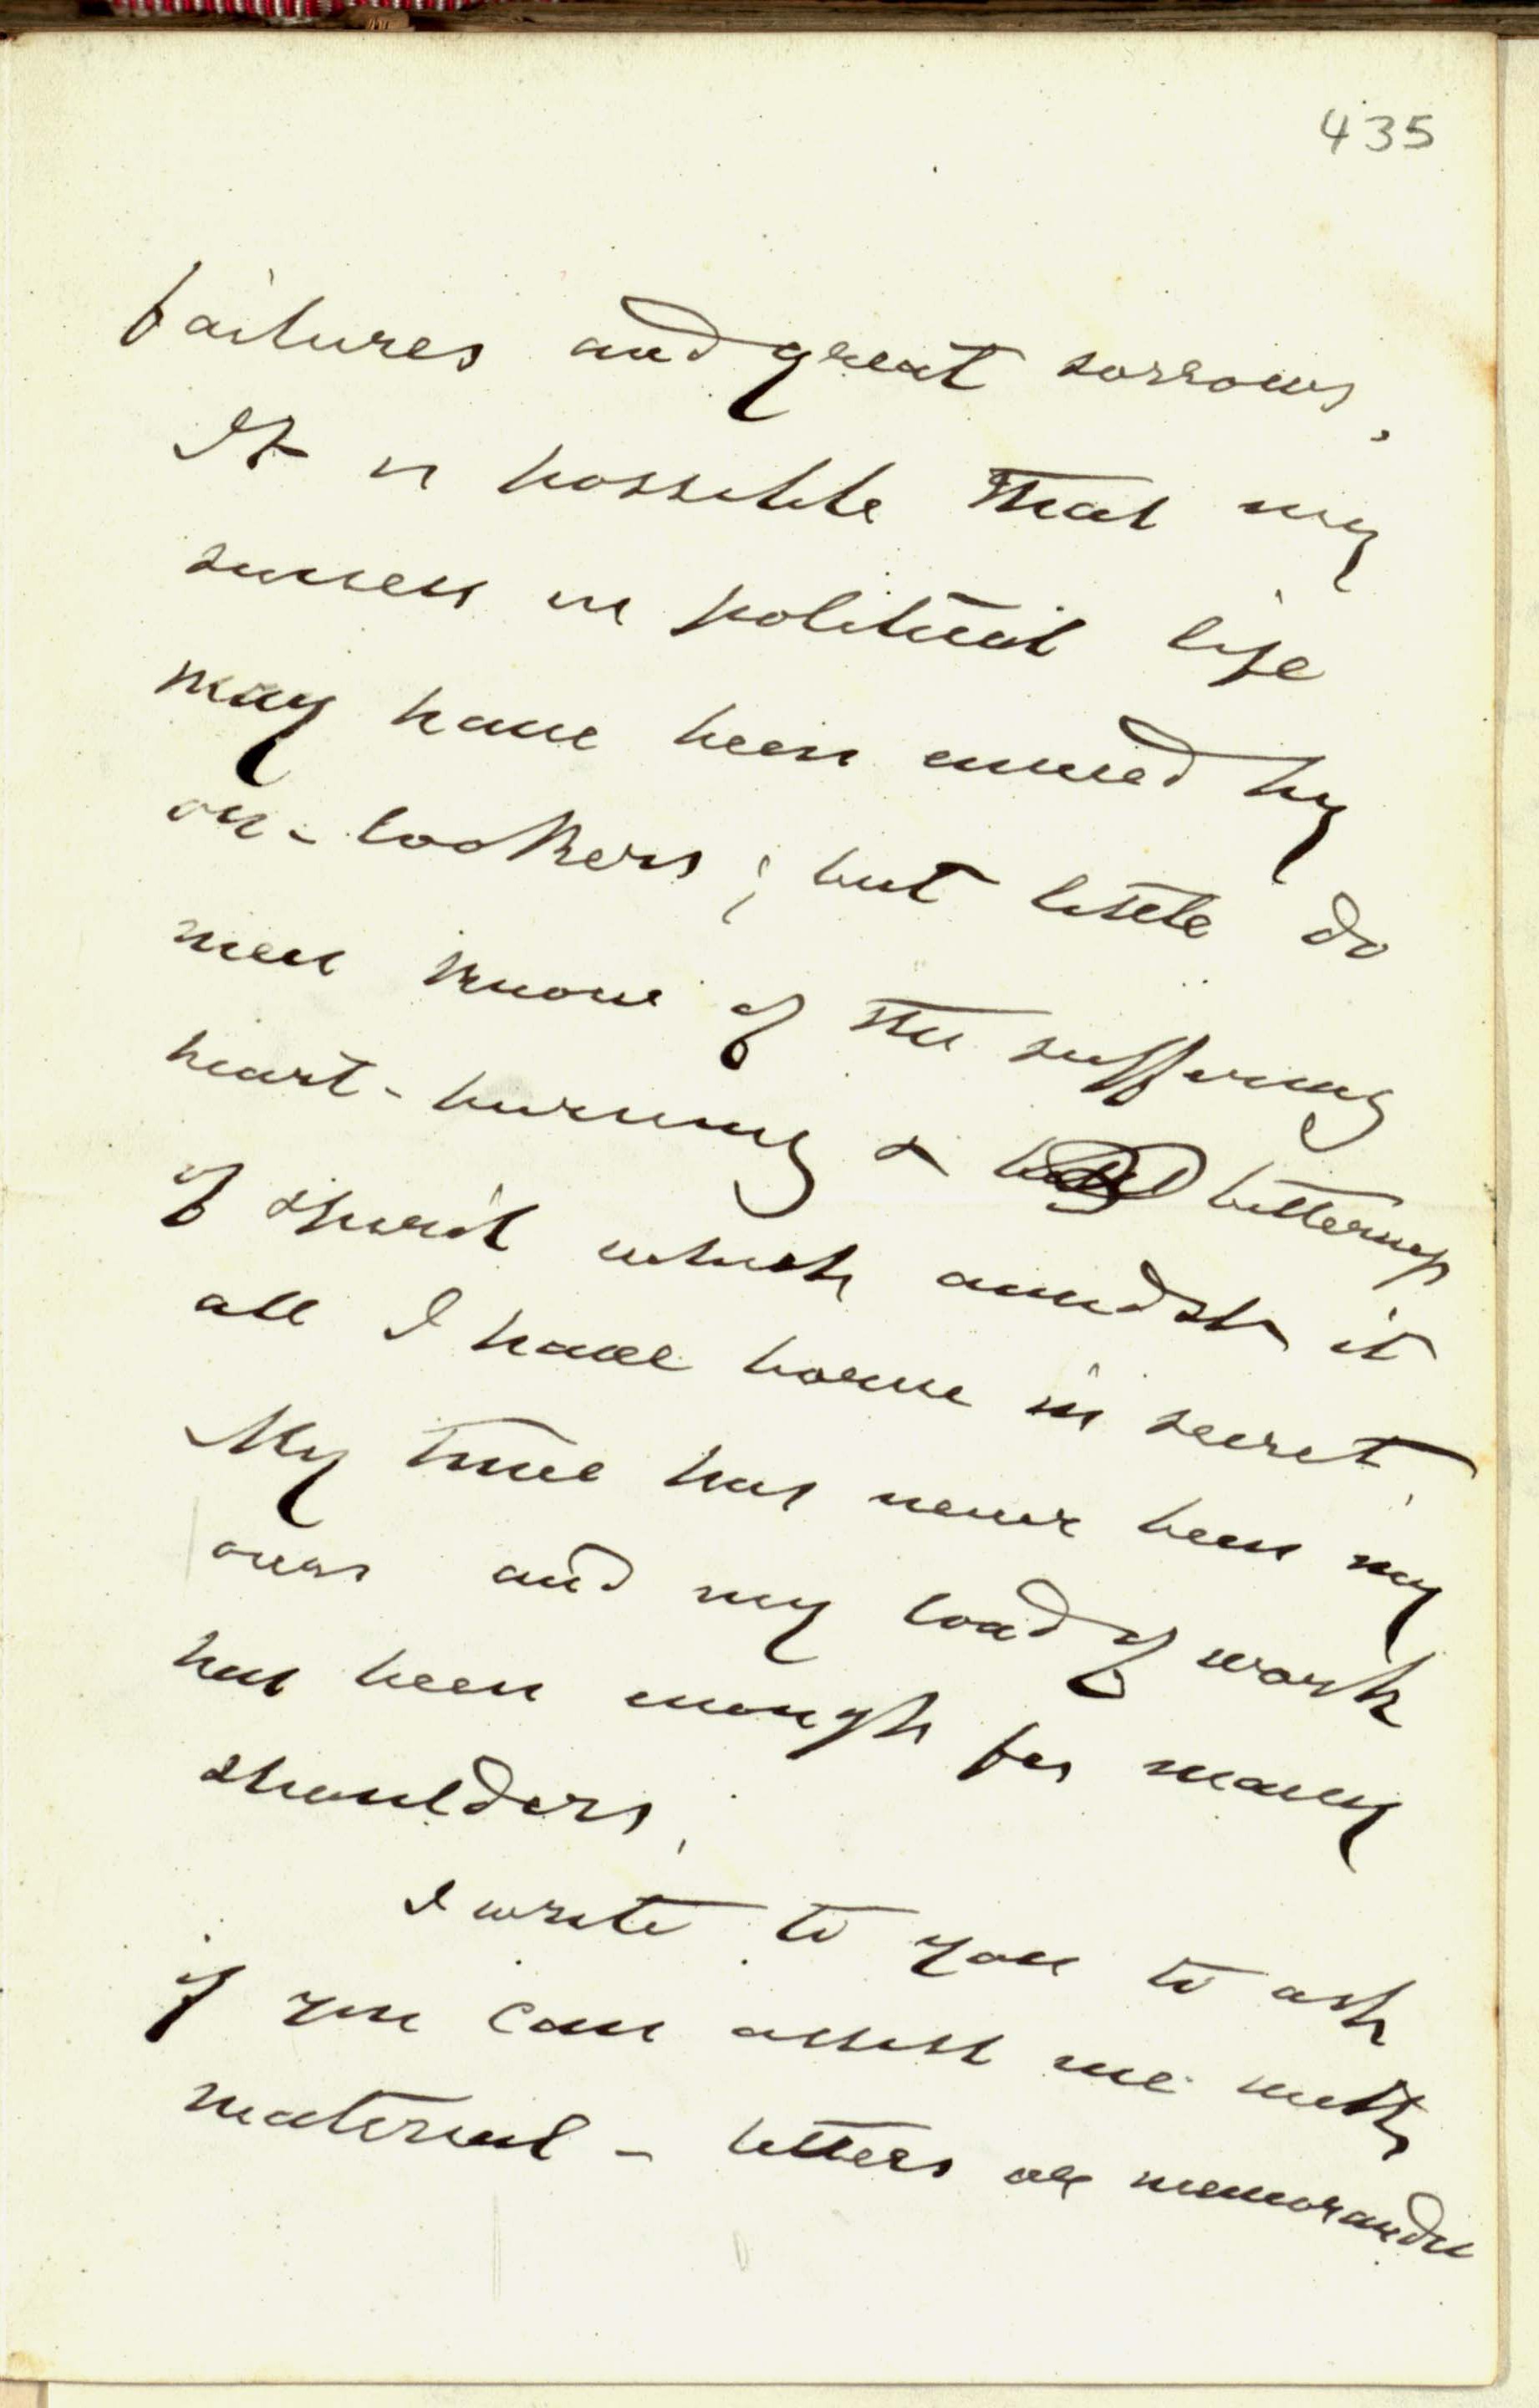 435
failures and great sorrows.
It is possible that my
success in political life
may have been envied by
on-lookers; but little do
men know of the suffering
heart-burning & bitterness
of spirit which amidst it
all I have borne in secret.
My time has never been my
own and my load of work
has been enough for many
shoulders.
I write to you to ask
if you can assist me with
material - letters or memoranda